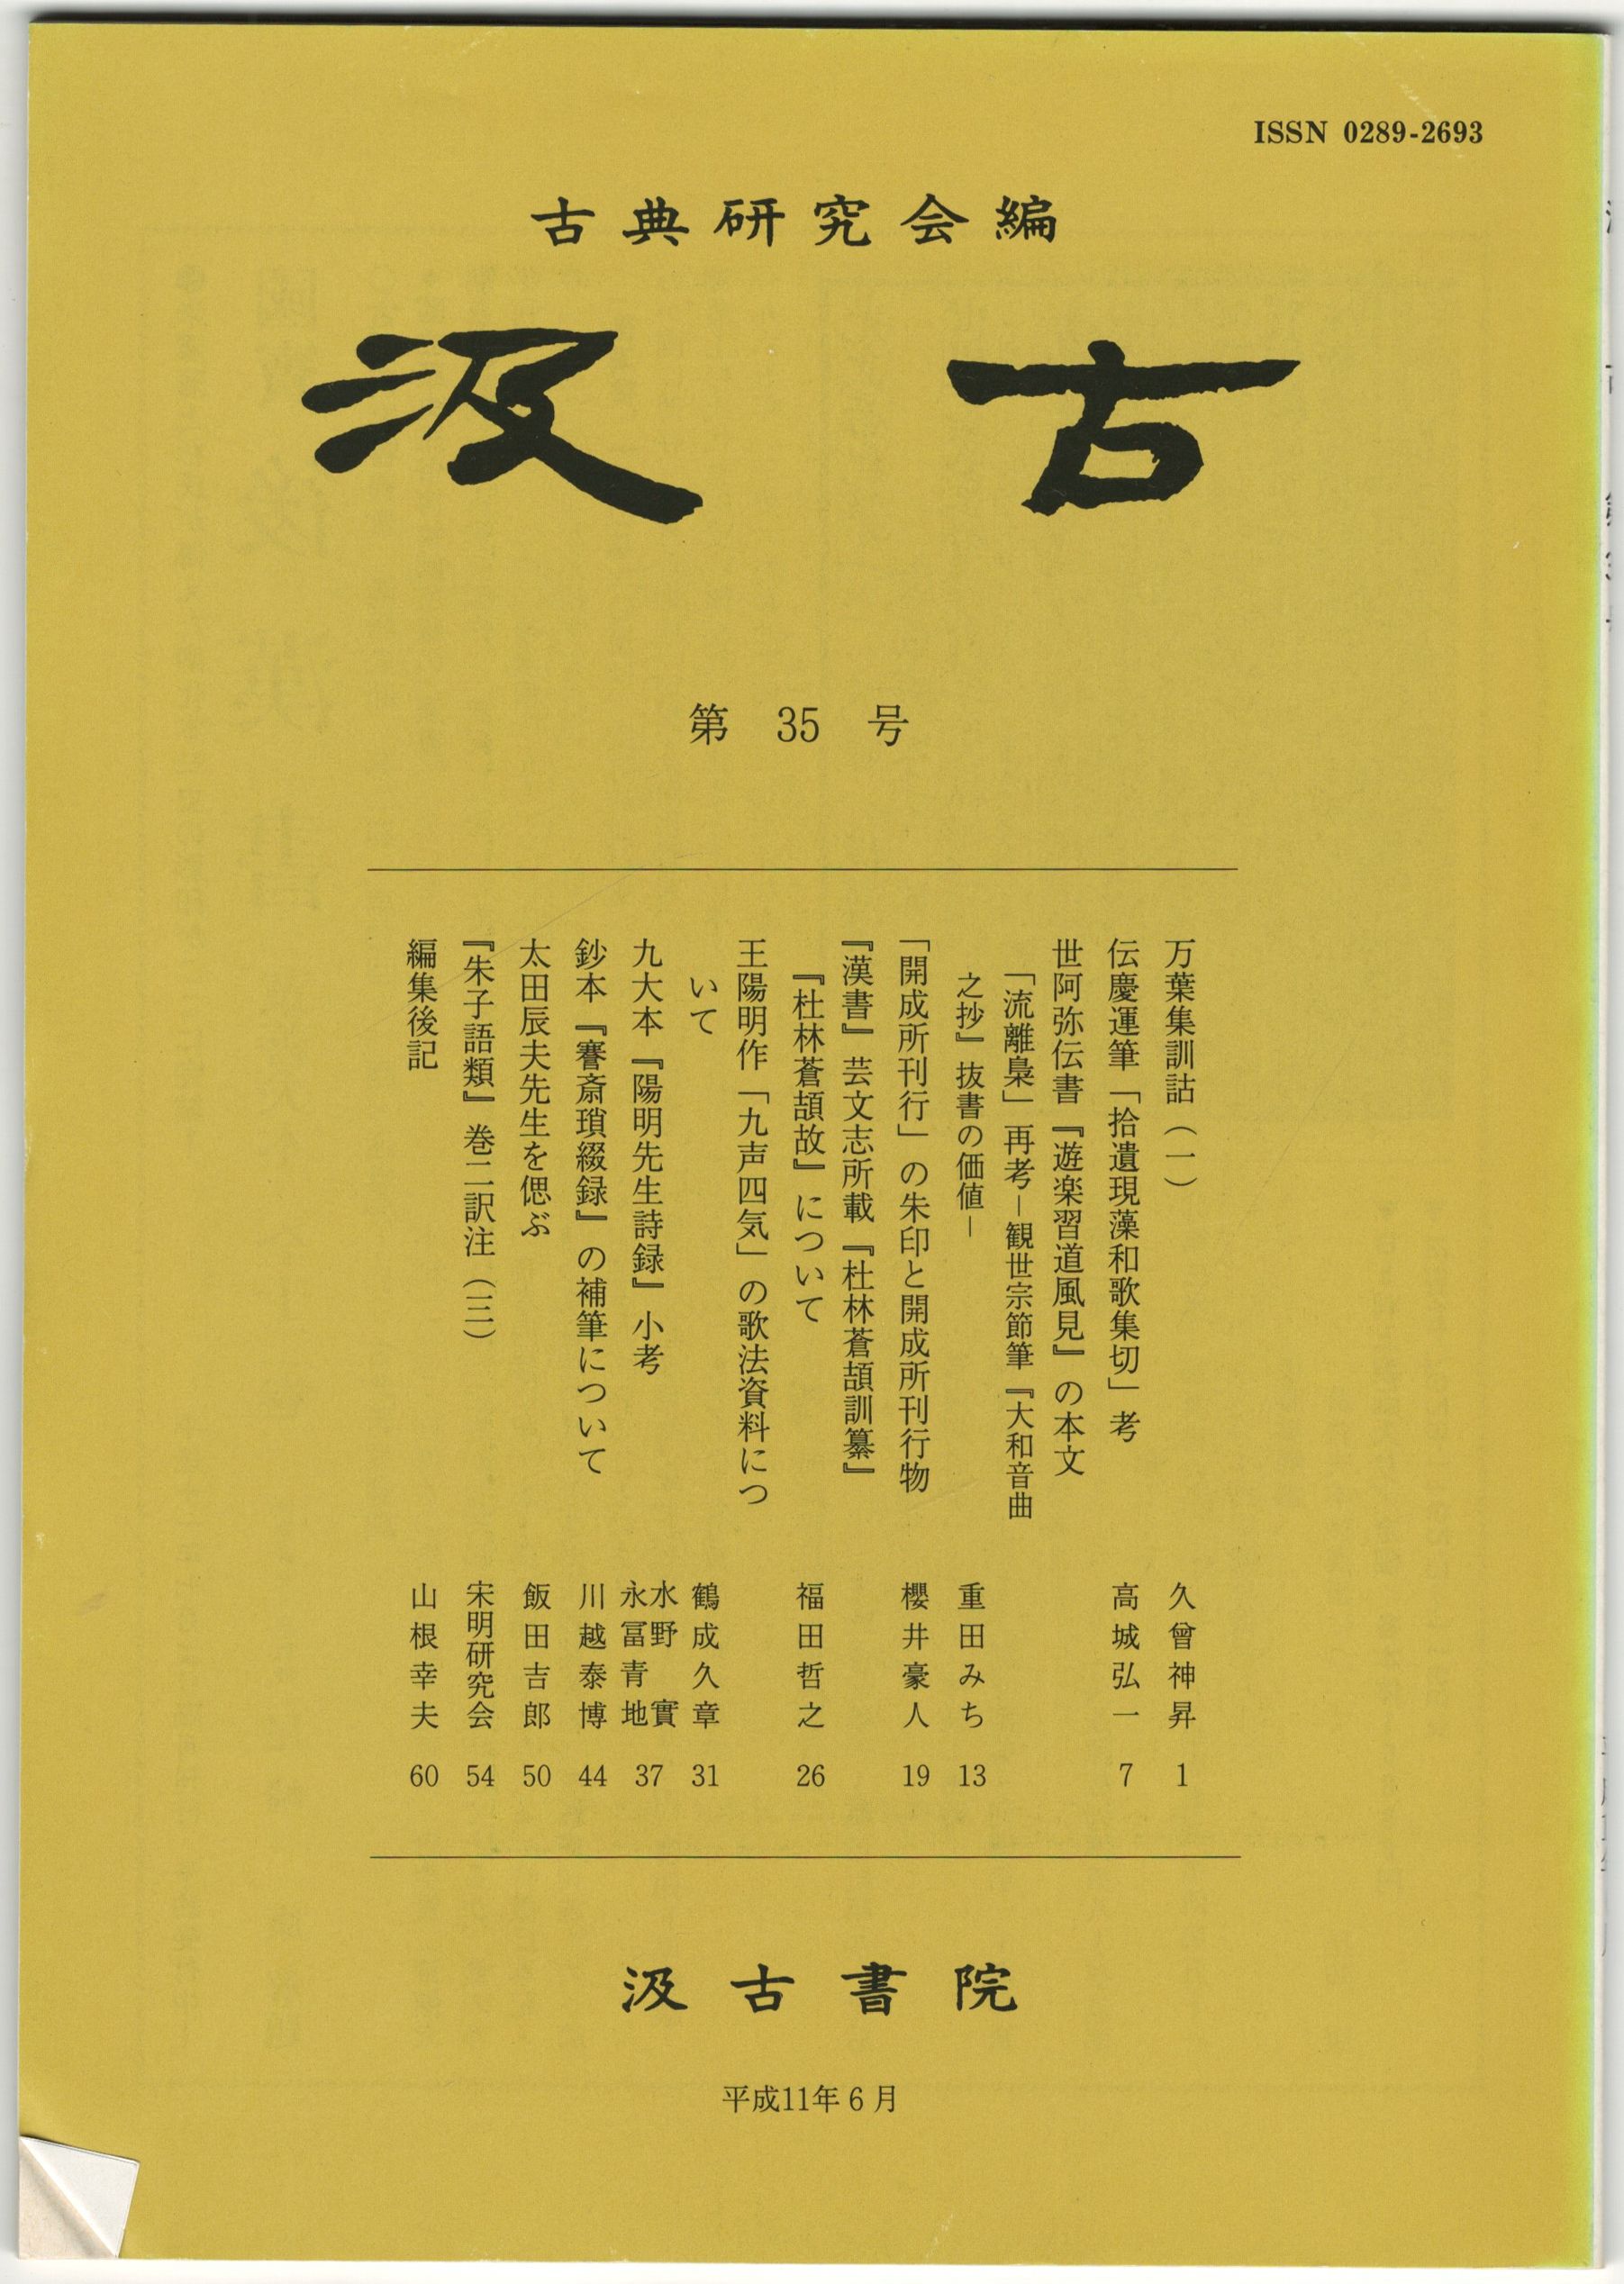 ISSN 0289-2693
古典研究会編
汲古
第 35 号
万葉集訓詁（一） 久曾神昇 1
伝慶運筆「拾遺現藻和歌集切」考 高城弘一 7
世阿弥伝書『遊楽習道風見』の本文
「流離梟」再考－観世宗節筆『大和音曲
之抄』抜書の価値－ 重田みち 13
「開成所刊行」の朱印と開成所刊行物 櫻井豪人 19
『漢書』芸文志所載『杜林蒼頡訓纂』
『杜林蒼頡故』について 福田哲之 26
王陽明作「九声四気」の歌法資料につ
いて 鶴成久章 31
九大本『陽明先生詩録』小考 水野實 永冨青地 37
鈔本『謇斎瑣綴録』の補筆について 川越泰博 44
太田辰夫先生を偲ぶ 飯田吉郎 50
『朱子語類』巻二訳注（三） 宋明研究会 54
編集後記 山根幸夫 60
汲古書院
平成11年6月